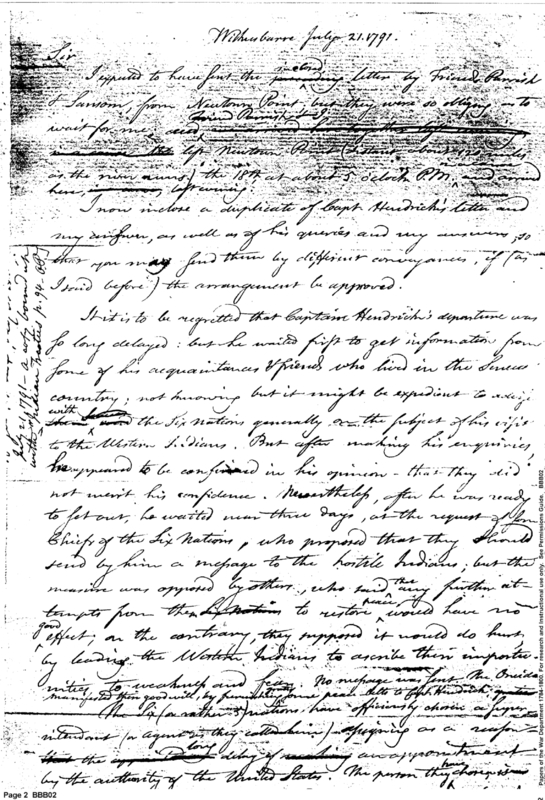 Wilkesbarre July 21. 1791.
Sir
I expected to have sent the inclosed letter by Friend Parrish
& Sansom, from Newtown Point; but they were so obliging as to
wait for me, and
left Newtown Point
as the river runs) the 18th at about 5 oClock P.M. and arrived
here,
I now inclose a duplicate of Capt Hendrick's letter and
my answer, as well as of his queries and my answers, so
that you may send them by different conveyances, if (as
I said before) the arrangement be approved.
It is to be regretted that Captain Hendrick's departure was
so long delayed: but he waited first to get information from
some of his acquaintances & friends who lived in the Seneca
country; not knowing but it might be expedient to
with the Six Nations generally on the subject of his visit
to the Western Indians. But after making his enquiries,
he appeared to be confirmed in his opinion - that they did
not merit his confidence. Nevertheless, after he was ready
to set out, he waited near three days, at the request of some
Chiefs of the Six Nations, who proposed that they should
send by him a message to the hostile Indians; but the
measure was opposed by others, who said that any further at-
tempts from the Six Nations to restore peace would have no
good effect; on the contrary, they supposed it would do hurt,
by leading the Western Indians to ascribe their importu-
nities to weakness and fear. No message was sent. The Oneida
manifested their good will, by some peace belts to Capt. Hendrick
The Six (or rather 5) nations have officiously chosen a super-
intendant (or agent as they called him) assigning as a reason
that the long delay of an appointment
by the authority of the United States. The person they have chosen is
July 21, 1791 - a copy bound up
with Indian treaties p. 94.
Page 2 BBB02
Papers of the War Department 1784-1800. For research and instructional use only. See Permissions Guide. BBB02,